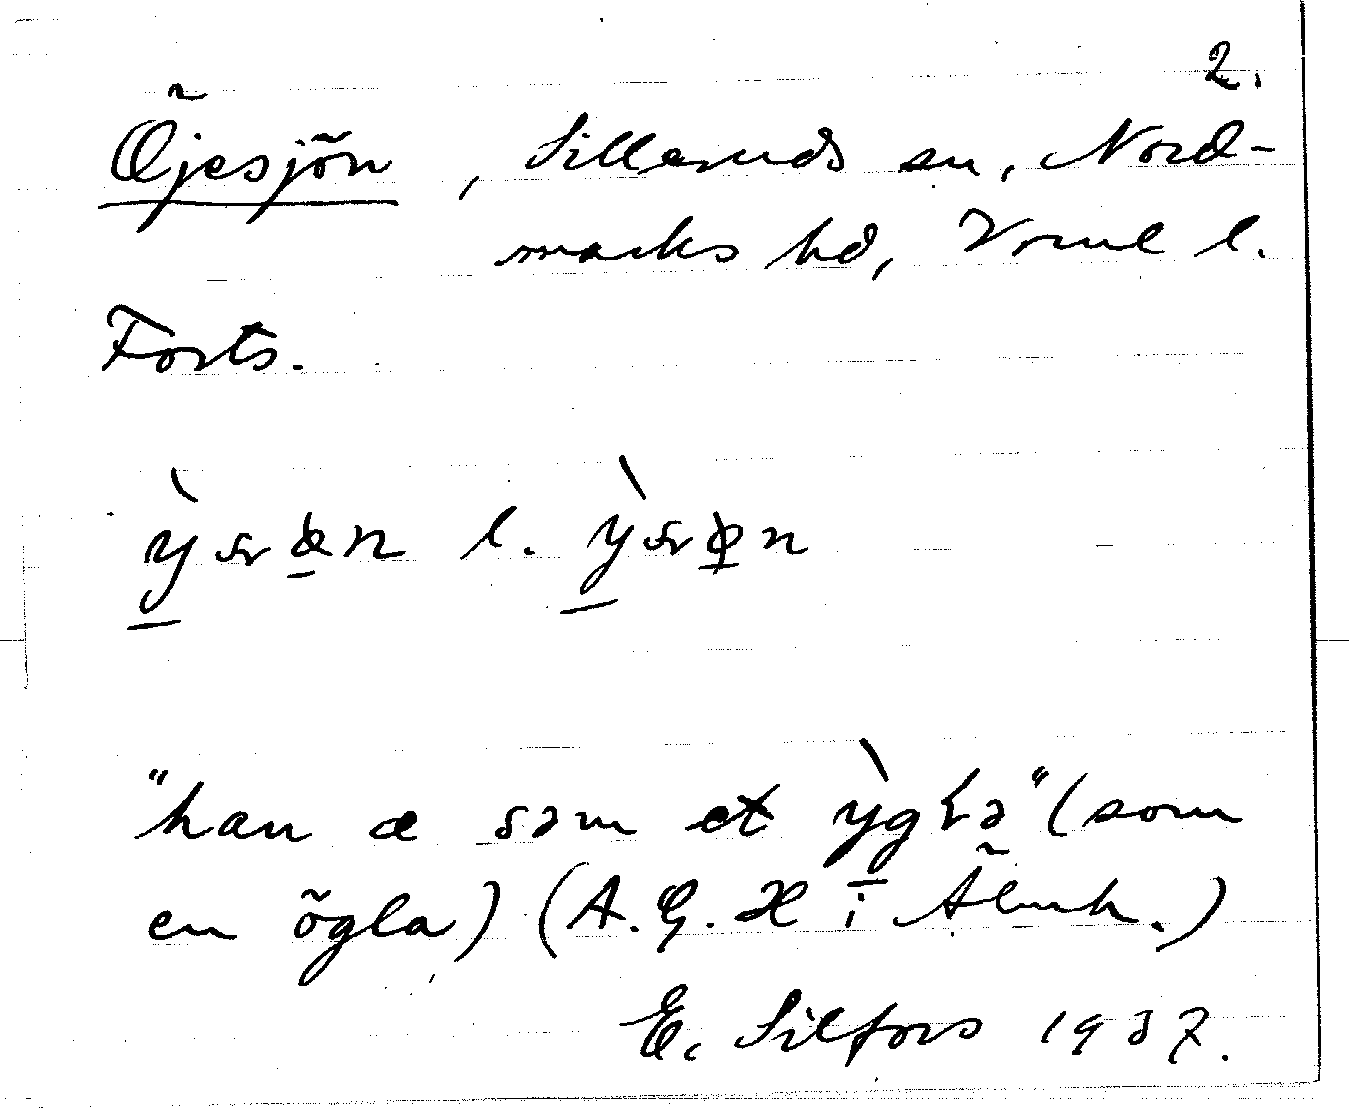 2.
Öjesjön, Silleruds sn, Nord-
marks hd, Vrml l.
Forts.
l.
"han æ səm et ỳgɫə" (som
en ögla) (A.G. H i Ålmh.)
E. Silfors 1937.